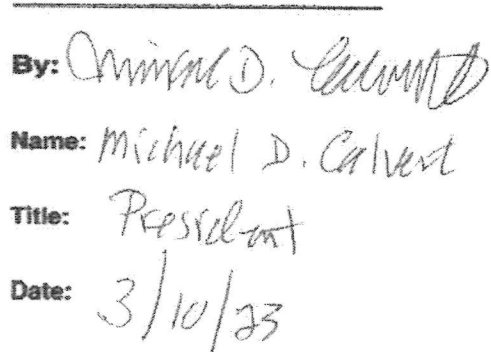 By: Michael D. Calvert
Name: Michael D. Calvert
Title: President
Date: 3/10/23